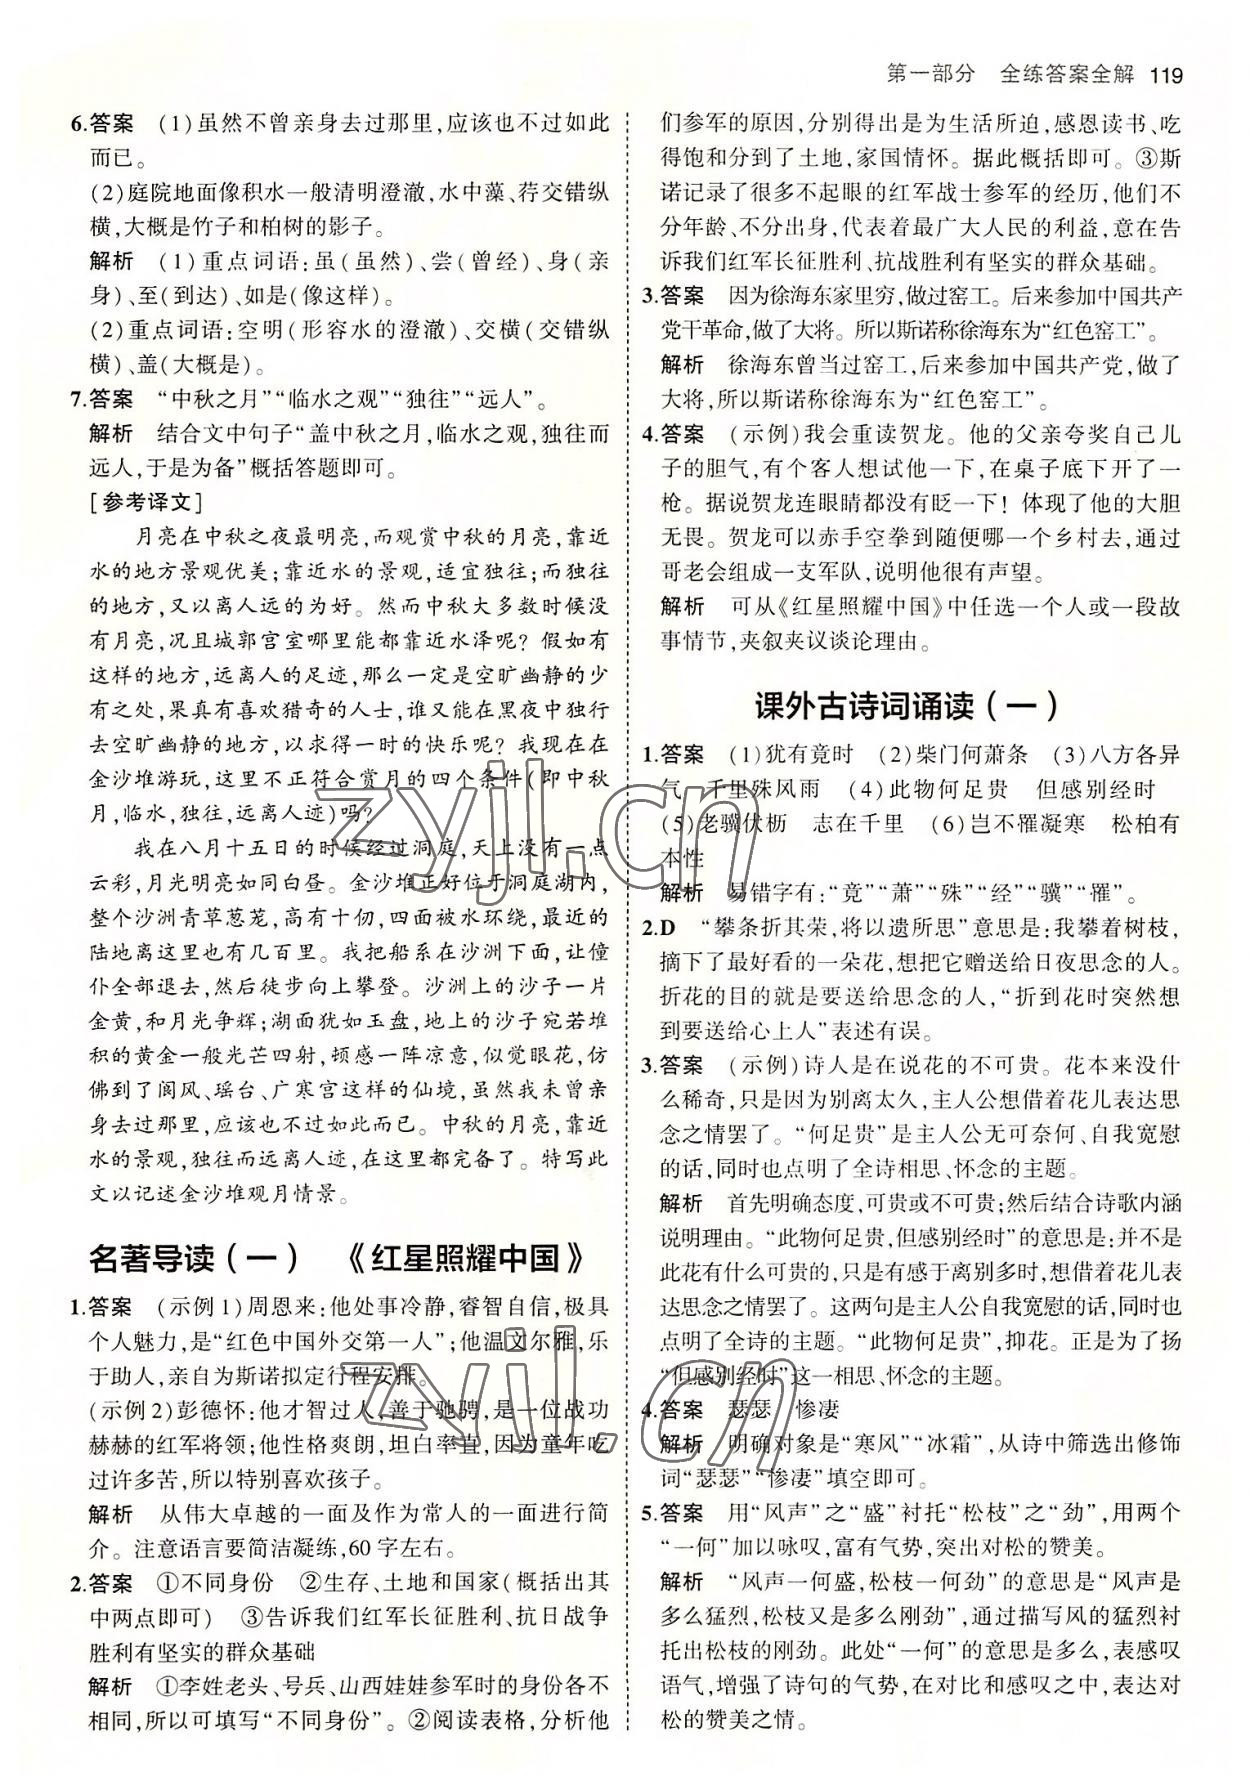 第一部分 全练答案全解 119
6.答案 (1)虽然不曾亲身去过那里,应该也不过如此
而已。
(2)庭院地面像积水一般清明澄澈,水中藻、荇交错纵
横,大概是竹子和柏树的影子。
解析 (1)重点词语:虽(虽然)、尝(曾经)、身(亲
身)、至(到达)、如是(像这样)。
(2)重点词语:空明(形容水的澄澈)、交横(交错纵
横)、盖(大概是)。
7.答案 “中秋之月”“临水之观”“独往”“远人”。
解析 结合文中句子“盖中秋之月,临水之观,独往而
远人,于是为备”概括答题即可。
[参考译文]
月亮在中秋之夜最明亮,而观赏中秋的月亮,靠近
水的地方景观优美;靠近水的景观,适宜独往;而独往
的地方,又以离人远的为好。然而中秋大多数时候没
有月亮,况且城郭宫室哪里能都靠近水泽呢?假如有
这样的地方,远离人的足迹,那么一定是空旷幽静的少
有之处,果真有喜欢猎奇的人士,谁又能在黑夜中独行
去空旷幽静的地方,以求得一时的快乐呢?我现在在
金沙堆游玩,这里不正符合赏月的四个条件(即中秋
月,临水,独往,远离人迹)吗?
我在八月十五日的时候经过洞庭,天上没有一点
云彩,月光明亮如同白昼。金沙堆正好位于洞庭湖内,
整个沙洲青草葱茏,高有十仞,四面被水环绕,最近的
陆地离这里也有几百里。我把船系在沙洲下面,让僮
仆全部退去,然后徒步向上攀登。沙洲上的沙子一片
金黄,和月光争辉;湖面犹如玉盘,地上的沙子宛若堆
积的黄金一般光芒四射,顿感一阵凉意,似觉眼花,仿
佛到了阆风、瑶台、广寒宫这样的仙境,虽然我未曾亲
身去过那里,应该也不过如此而已。中秋的月亮,靠近
水的景观,独往而远离人迹,在这里都完备了。特写此
文以记述金沙堆观月情景。
名著导读(一) 《红星照耀中国》
1.答案 (示例1)周恩来:他处事冷静,睿智自信,极具
个人魅力,是“红色中国外交第一人”;他温文尔雅,乐
于助人,亲自为斯诺拟定行程安排。
(示例2)彭德怀:他才智过人,善于驰骋,是一位战功
赫赫的红军将领;他性格爽朗,坦白率直,因为童年吃
过许多苦,所以特别喜欢孩子。
解析 从伟大卓越的一面及作为常人的一面进行简
介。注意语言要简洁凝练,60字左右。
2.答案 ①不同身份 ②生存、土地和国家(概括出其
中两点即可) ③告诉我们红军长征胜利、抗日战争
胜利有坚实的群众基础
解析 ①李姓老头、号兵、山西娃娃参军时的身份各不
相同,所以可填写“不同身份”。②阅读表格,分析他
们参军的原因,分别得出是为生活所迫,感恩读书、吃
得饱和分到了土地,家国情怀。据此概括即可。③斯
诺记录了很多不起眼的红军战士参军的经历,他们不
分年龄、不分出身,代表着最广大人民的利益,意在告
诉我们红军长征胜利、抗战胜利有坚实的群众基础。
3.答案 因为徐海东家里穷,做过窑工。后来参加中国共产
党干革命,做了大将。所以斯诺称徐海东为“红色窑工”。
解析 徐海东曾当过窑工,后来参加中国共产党,做了
大将,所以斯诺称徐海东为“红色窑工”。
4.答案 (示例)我会重读贺龙。他的父亲夸奖自己儿
子的胆气,有个客人想试他一下,在桌子底下开了一
枪。据说贺龙连眼睛都没有眨一下!体现了他的大胆
无畏。贺龙可以赤手空拳到随便哪一个乡村去,通过
哥老会组成一支军队,说明他很有声望。
解析 可从《红星照耀中国》中任选一个人或一段故
事情节,夹叙夹议谈论理由。
课外古诗词诵读(一)
1.答案 (1)犹有竟时 (2)柴门何萧条 (3)八方各异
气 千里殊风雨 (4)此物何足贵 但感别经时
(5)老骥伏枥 志在千里 (6)岂不罹凝寒 松柏有
本性
解析 易错字有:“竟”“萧”“殊”“经”“骥”“罹”。
2.D “攀条折其荣,将以遗所思”意思是:我攀着树枝,
摘下了最好看的一朵花,想把它赠送给日夜思念的人。
折花的目的就是要送给思念的人,“折到花时突然想
到要送给心上人”表述有误。
3.答案 (示例)诗人是在说花的不可贵。花本来没什
么稀奇,只是因为别离太久,主人公想借着花儿表达思
念之情罢了。“何足贵”是主人公无可奈何、自我宽慰
的话,同时也点明了全诗相思、怀念的主题。
解析 首先明确态度,可贵或不可贵;然后结合诗歌内涵
说明理由。“此物何足贵,但感别经时”的意思是:并不是
此花有什么可贵的,只是有感于离别多时,想借着花儿表
达思念之情罢了。这两句是主人公自我宽慰的话,同时也
点明了全诗的主题。“此物何足贵”,抑花。正是为了扬
“但感别经时”这一相思、怀念的主题。
4.答案 瑟瑟 惨凄
解析 明确对象是“寒风”“冰霜”,从诗中筛选出修饰
词“瑟瑟”“惨凄”填空即可。
5.答案 用“风声”之“盛”衬托“松枝”之“劲”,用两个
“一何”加以咏叹,富有气势,突出对松的赞美。
解析 “风声一何盛,松枝一何劲”的意思是“风声是
多么猛烈,松枝又是多么刚劲”,通过描写风的猛烈衬
托出松枝的刚劲。此处“一何”的意思是多么,表感叹
语气,增强了诗句的气势,在对比和感叹之中,表达对
松的赞美之情。
zyjl.cn
zyjl.cn